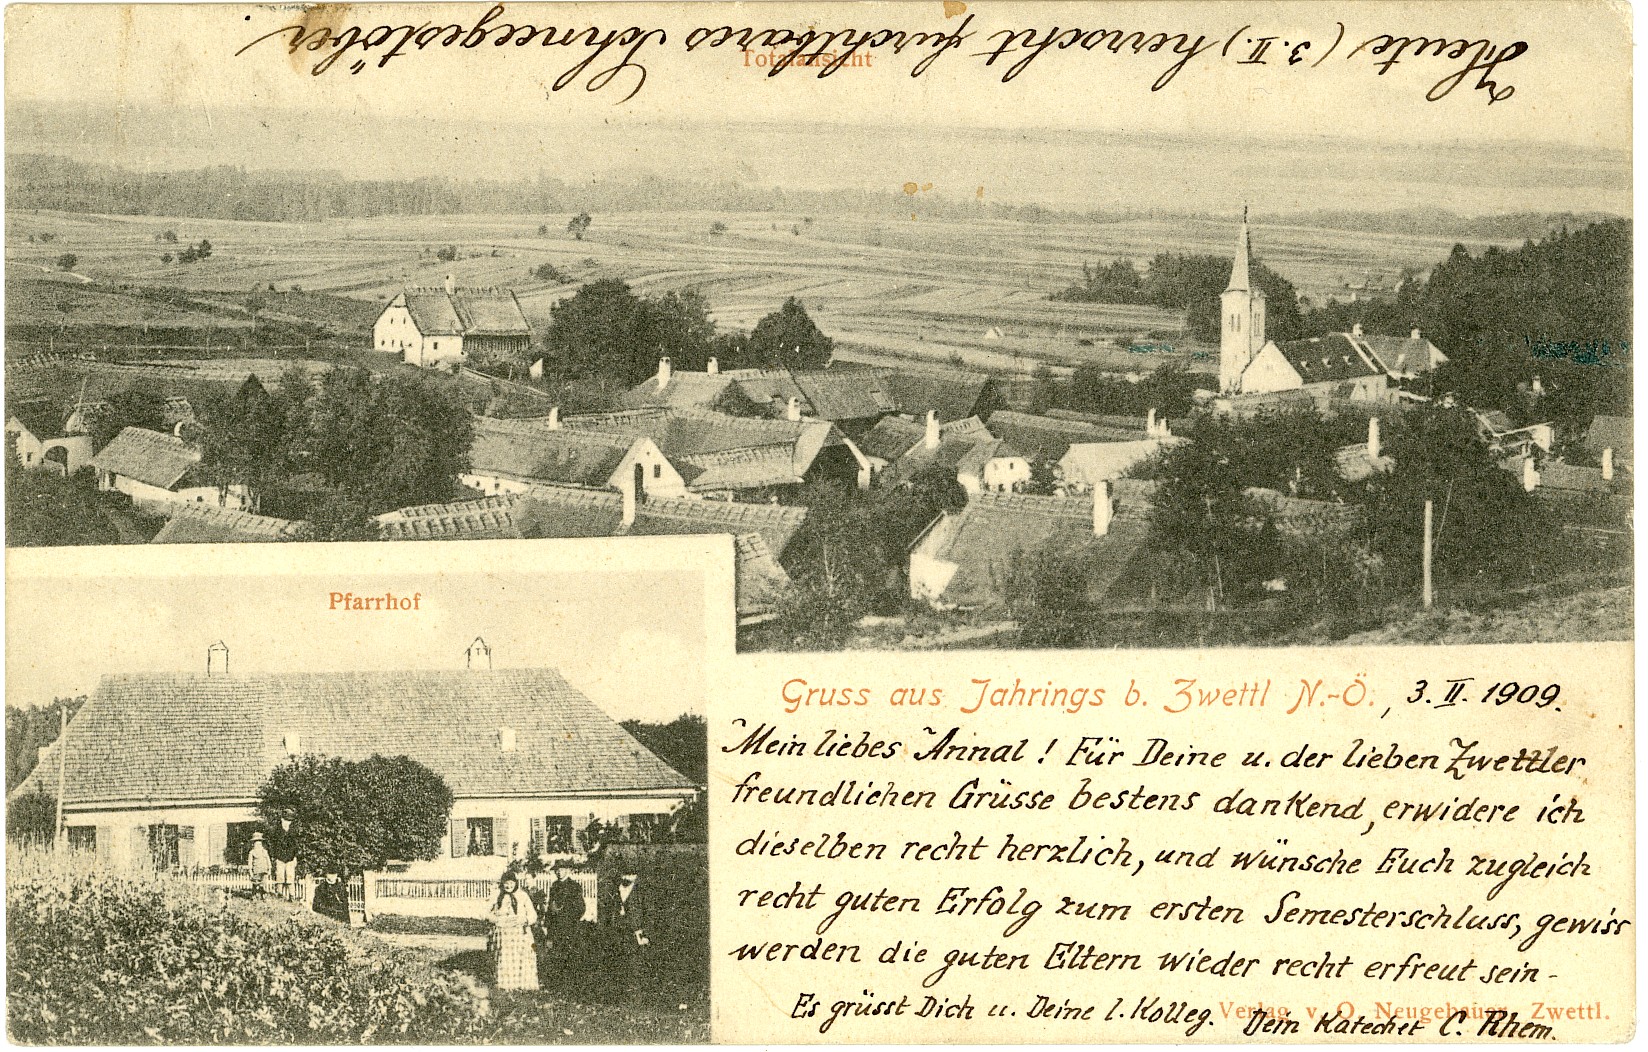 Heute (3.II.) herrscht furchtbares Schneegestöber.
Totalansicht
Pfarrhof
Gruss aus Jahrings b. Zwettl N.-Ö., 3. II. 1909.
Mein liebes Annal! Für Deine u. der lieben Zwettler
freundlichen Grüsse bestens dankend, erwidere ich
dieselben recht herzlich, und wünsche Euch zugleich
recht guten Erfolg zum ersten Semesterschluss, gewiss
werden die guten Eltern wieder recht erfreut sein -
Es grüsst Dich u. Deine l. Kolleg. Dein Katechet C. Rhem.
Verlag v. O. Neugebauer, Zwettl.